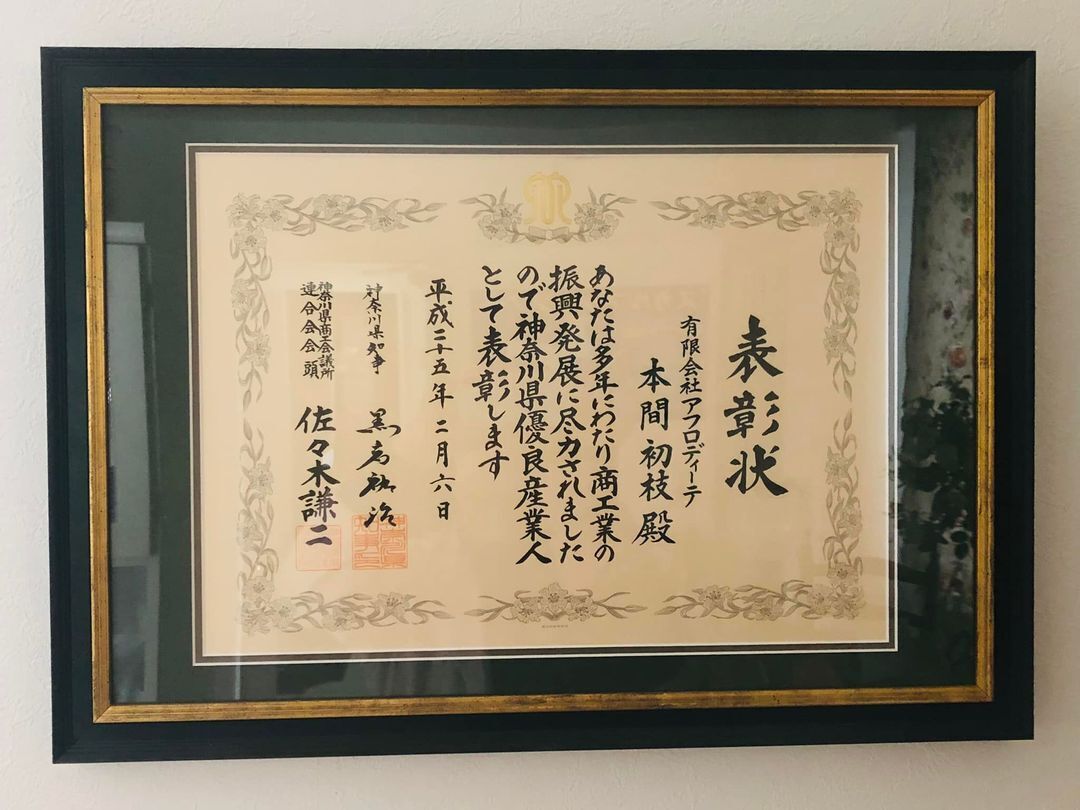 表彰状
有限会社アフロディーテ
本間初枝殿
あなたは多年にわたり商工業の
振興発展に尽力されました
ので神奈川県優良産業人
として表彰します
平成二十五年二月六日
神奈川県知事 黒岩祐治
神奈川県商工会議所
連合会会頭 佐々木謙二